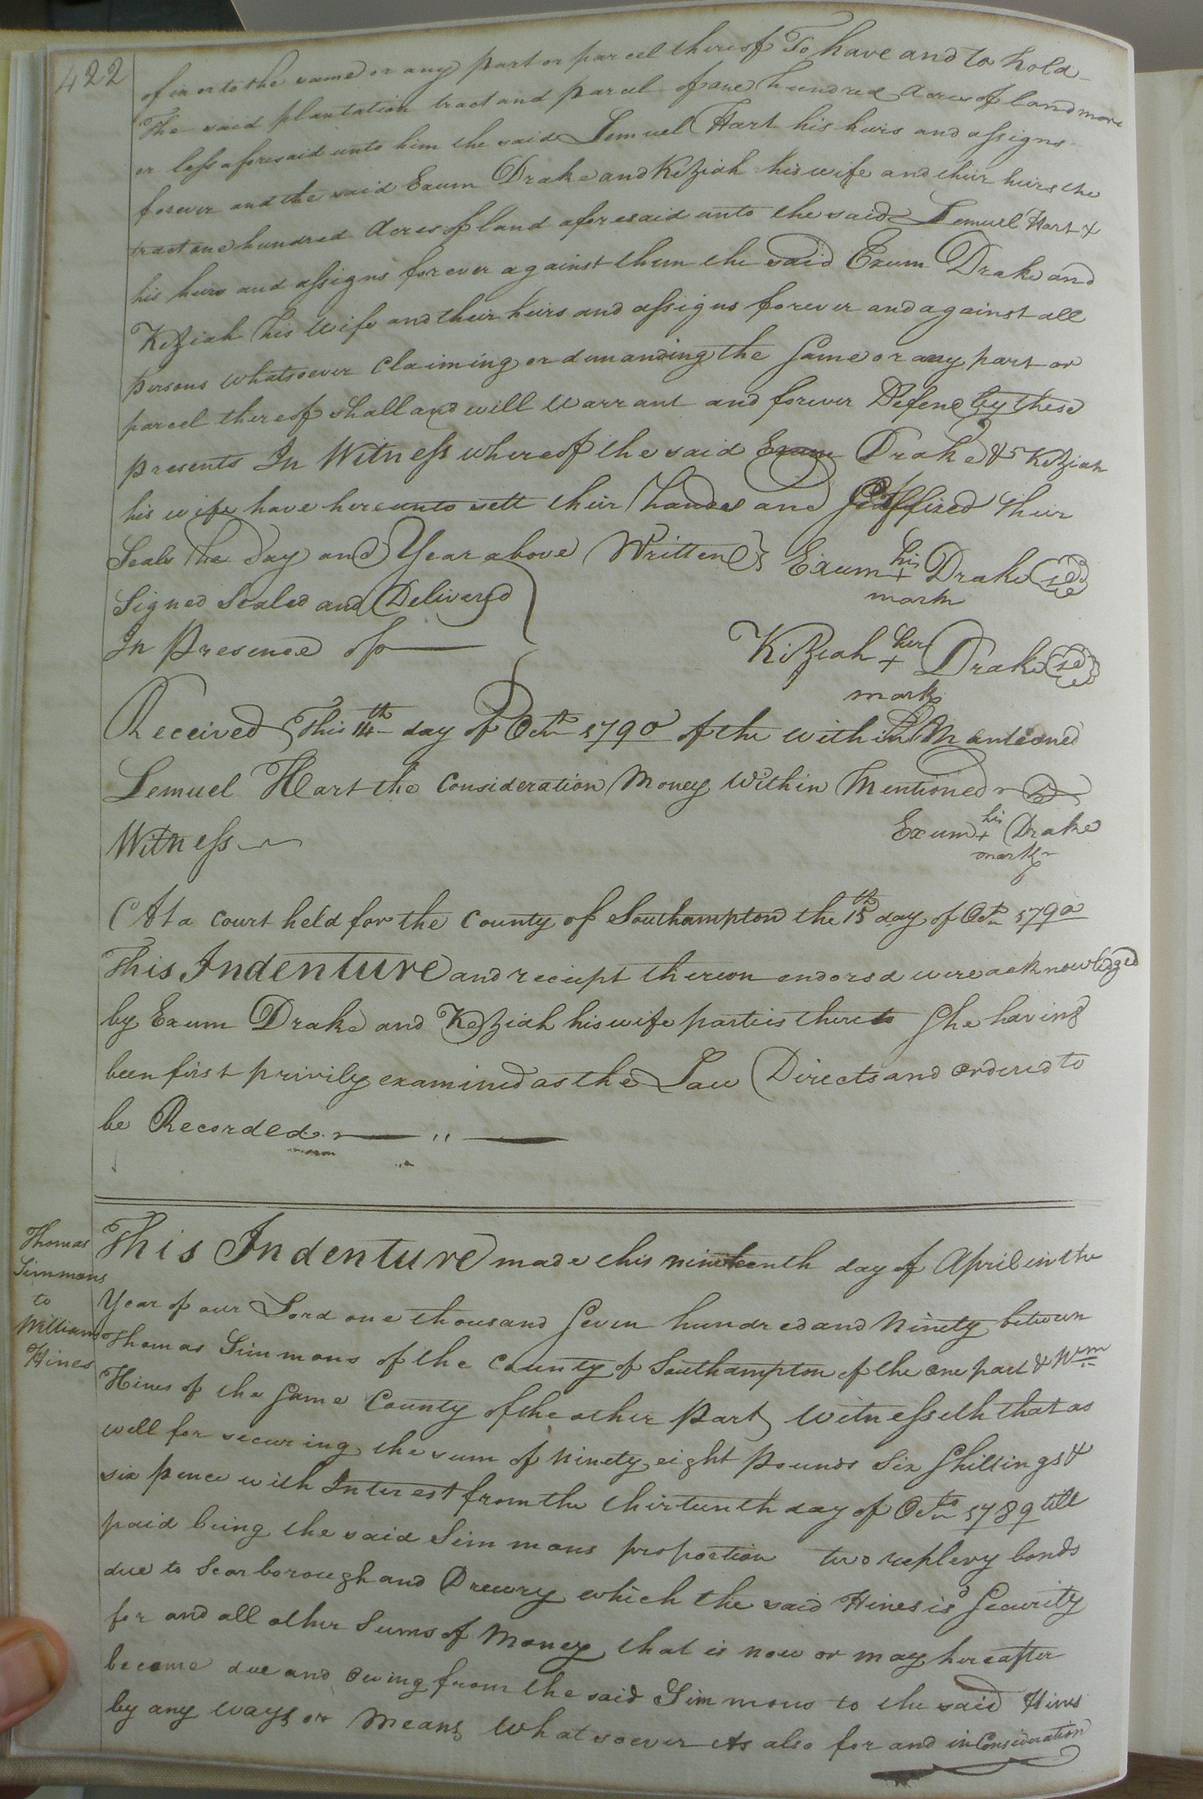 422
of in or to the same or any part or parcel thereof To have and to hold
The said plantation tract and parcel of one hundred Acres of land more
or less aforesaid unto him the said Lemuel Hart his heirs and assigns
forever and the said Exum Drake and Kiziah his wife and their heirs the
tract one hundred Acres of land aforesaid unto the said Lemuel Hart &
his heirs and assigns forever against them the said Exum Drake and
Kiziah his wife and their heirs and assigns forever and against all
persons whatsoever Claiming or demanding the same or any part or
parcel thereof shall and will warrant and forever Defend by these
presents In Witness whereof the said Exum Drake & Kiziah
his wife have hereunto sett their hands and affixed their
Seals the day and Year above Written Exum his + mark Drake
Signed Sealed and Delivered
In Presence of
Kiziah her + mark Drake
Received This 14th day of Octr 1790 of the within Mentioned
Lemuel Hart the Consideration Money Within Mentioned
Exum his + mark Drake
Witness
At a Court held for the County of Southampton the 15th day of Octr 1790
This Indenture and receipt thereon endorsd were acknowledged
by Exum Drake and Keziah his wife parties thereto She having
been first privily examined as the Law Directs and ordered to
be Recorded
Thomas
Simmons
to
William
Hines
This Indenture made this nineteenth day of April in the
Year of our Lord one thousand Seven hundred and Ninety between
Thomas Simmons of the County of Southampton of the one part & Wm
Hines of the Same County of the other Part Witnesseth that as
well for securing the sum of Ninety eight Pounds Six Shillings &
six pence with Interest from the thirteenth day of Octr 1789 till
paid being the said Simmons proportion two replevy bonds
due to Scarborough and Drewry which the said Hines is Security
for and all other Sums of Money that is now or may hereafter
become due and Owing from the said Simmons to the said Hines
by any ways or Means Whatsoever As also for and in Consideration